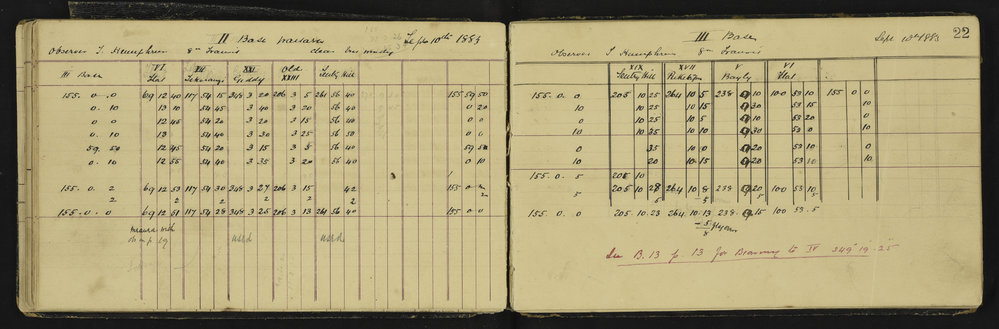 II Base Septr 10th 1883
Observer T. Humphries 8in Transit clear but windy
VI XII XXI Old XXIII
III Base Flat Geddy Sentry Hill
155. 0. 0 69 12 40 117 54 15 348 3 20 206 3 5 261 56 40 155 59 50
0. 10 13 10 54 45 3 40 3 20 56 40 0 20
0. 0 12 45 54 20 3 20 3 15 56 40 0 0
0. 10 13 54 40 3 30 3 25 56 50 0 0
59. 50 12 45 54 20 3 15 3 5 56 40 59 50
0. 10 12 55 54 40 3 35 3 20 56 40 0 10
155. 0. 2 69 12 53 117 54 30 348 3 27 206 3 15 42 155 0 2
2 2 2 2 2 2
155. 0. 0 69 12 51 117 54 28 348 3 25 206 3 13 261 56 40 155 0 0
used used
III Base Sept 10th 1883 22
Observer T. Humphries 8in Transit
XIX XVII V VI
Sentry Hill Bayly Flat
155. 0. 0 205 10 25 264 10 5 238 9 10 100 53 10 155 0 0
10 10 25 10 15 9 30 53 15 10
0 10 25 10 5 9 10 53 20 0
10 10 25 10 10 9 30 53 0 10
0 25 10 0 9 20 53 10 0
10 20 10 15 9 20 53 10 10
155. 0. 5 205 10
5 205 10 28 264 10 8 238 9 20 100 53 10
5 5 5 5
155. 0. 0 205. 10. 23 264 10. 13 238. 9. 15 100 53. 5
- 5
8
See B. 13 p. 13 for Bearing to IV 249° 19' 25"